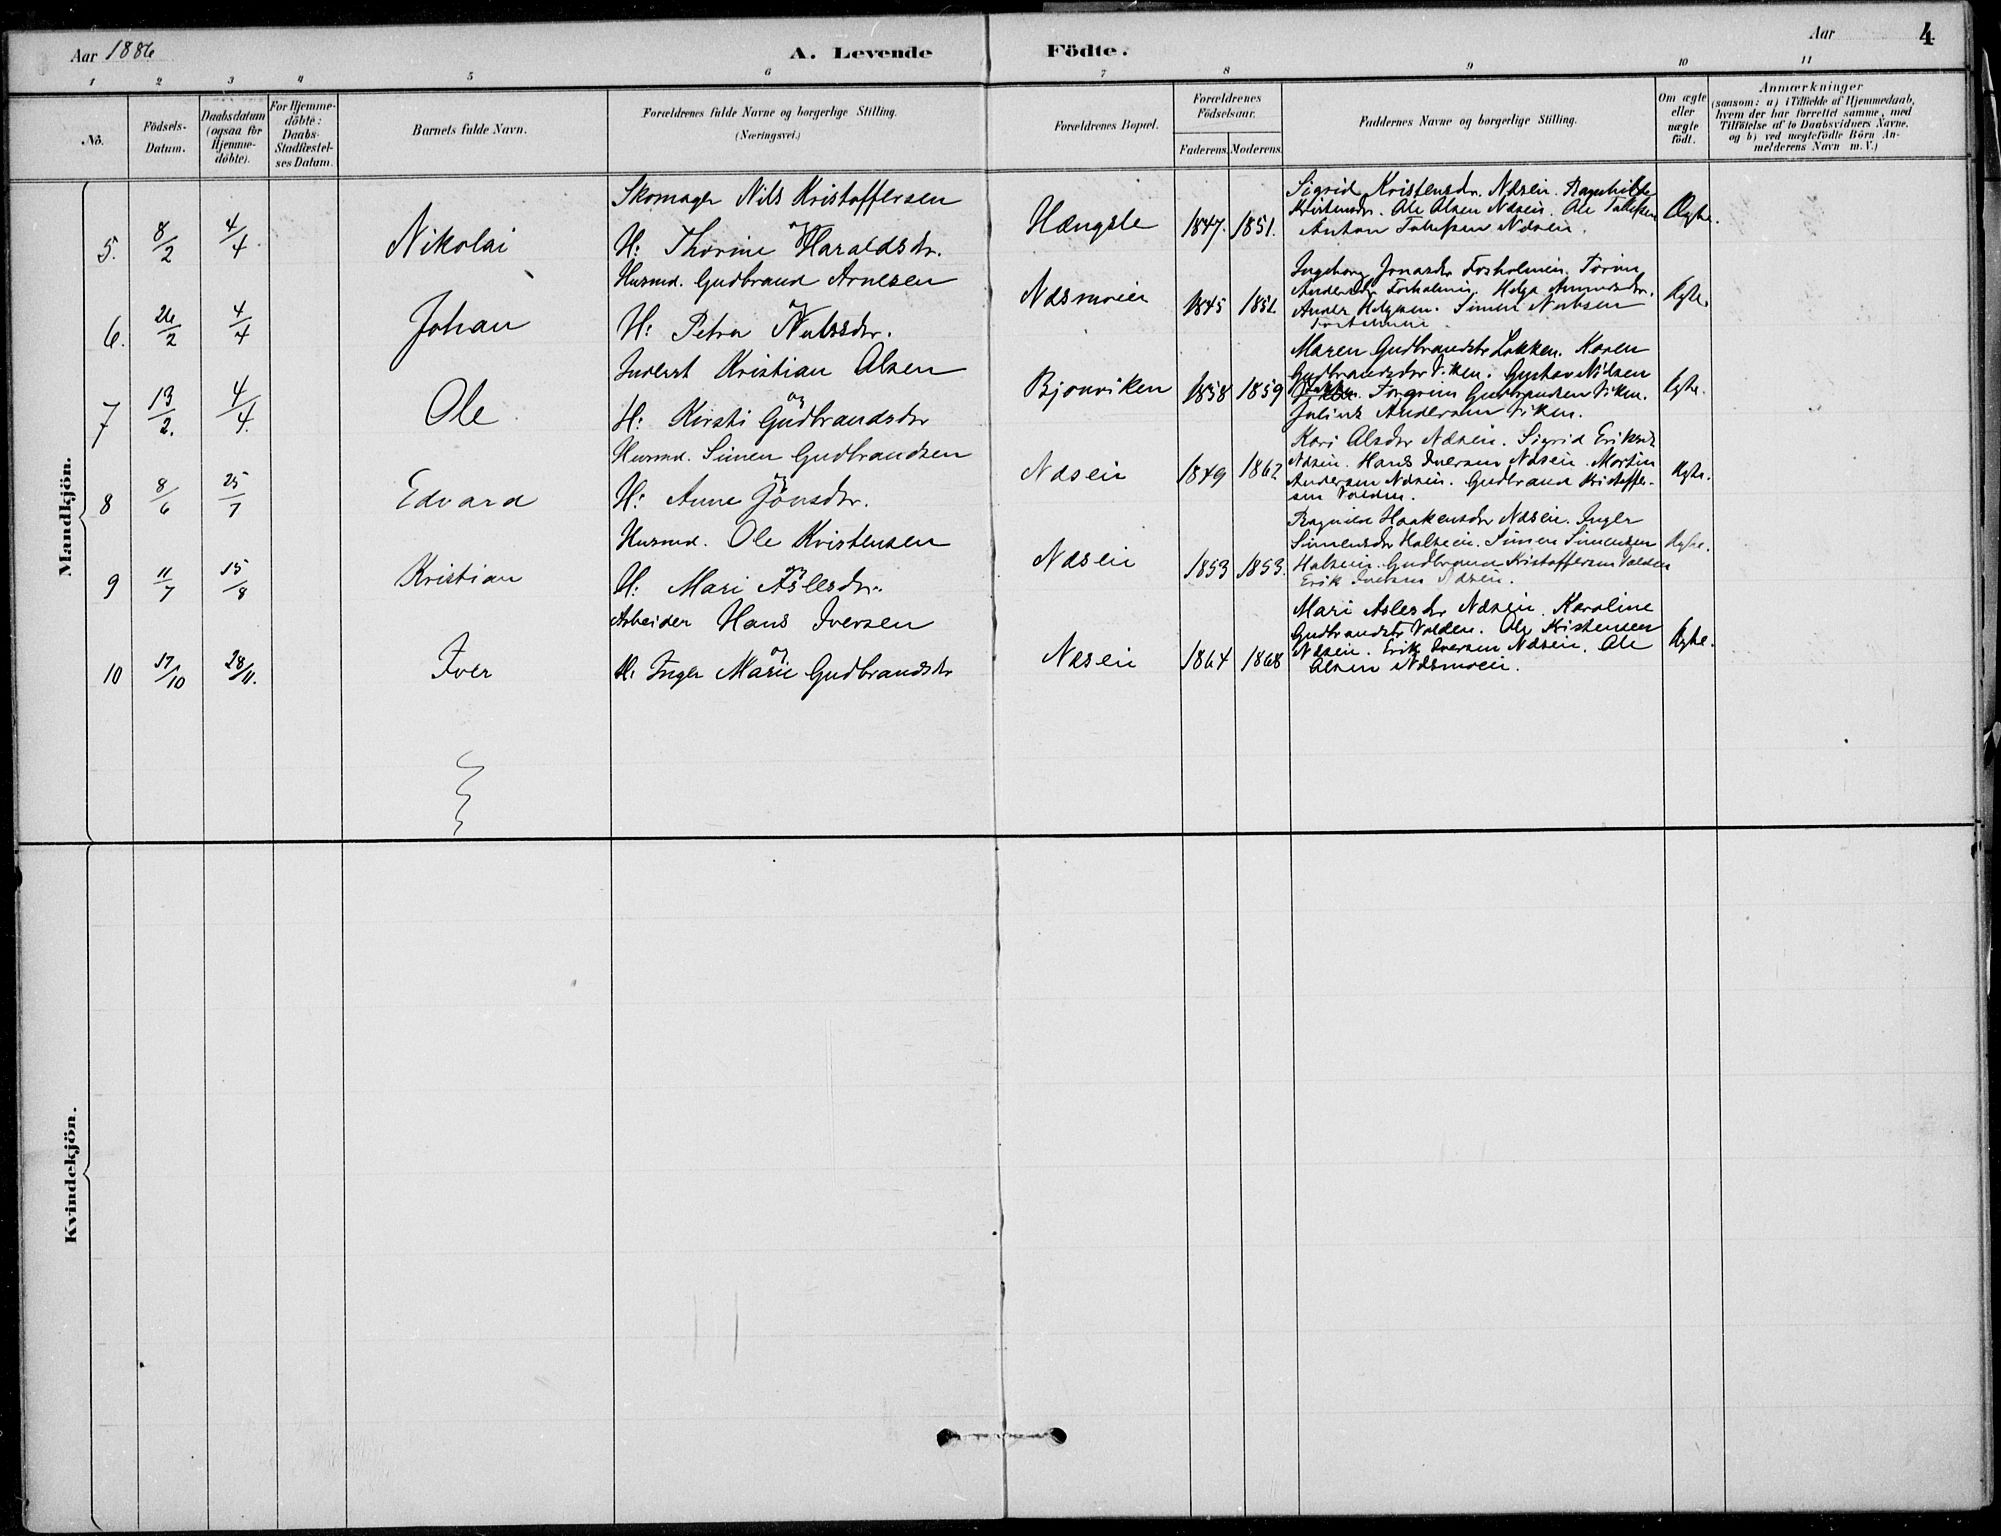 Aar 1886
A. Levende Födte.
Aar
4
1 2 3 4 5 6 7 8 9 10 11
No.
Födsels-Datum.
Daabsdatum (ogsaa for Hjemme-döbte).
For Hjemme-döbte: Daabs-Stadfæstel-ses Datum.
Barnets fulde Navn.
Forældrenes fulde Navne og borgerlige Stilling. (Næringsvei.)
Forældrenes Bopæl.
Forældrenes Födselsaar.
Faderens. Moderens.
Faddernes Navne og borgerlige Stilling.
Om ægte eller uægte födt.
Anmærkninger
(saasom: a) i Tilfælde af Hjemmedaab,
hvem der har forrettet samme, med
Tilföielse af to Daabsvidners Navne.
og b) ved uægtefödte Börn An-
melderens Navn m. V.)
Mandkjön.
5. 8/2 4/4 Nikolai
Skomager Nils Kristoffersen
og
H: Thorine Haraldsdr.
Hængsle 1847. 1851.
Sigrid Kristensdr. Næseie. Ragnhilde
Kristensdr. Ole Olsen Næseie. Ole
Anton Næseie.
Ægte.
6. 26/2 4/4 Johan
Husmd. Gudbrand Arnesen
og
H: Petra Nilsdr.
Næsmoeie 1845
Ingeborg Jonasdr
Simen
Ægte.
7 13/2. 4/4. Ole
Inderst Kristian Olsen
og
H: Kirsti Gudbrandsdr
Bjonviken 1858 1859
Maren Gudbrandsdr Løkken. Karen
Gudbrandsdr Viken. Gustav Nilsen
Gudbrandsen Viken.
Julius Andersen Viken.
Ægte.
8 8/6 25/7 Edvard
Husmd. Simen Gudbrandsen
og
H: Anne Jonsdr.
Næseie 1849 1862
Kari Olsdr Næseie. Sigrid Eriksdr
Næseie. Hans Iversen Næseie. Martin
Andersen Næseie. Gudbrand Kristoffer-
sen Volden.
Ægte.
9 11/7 15/8 Kristian
Husmd. Ole Kristensen
og
H: Mari Aslesdr.
Næseie 1853 1853.
Haakensdr Næseie. Inger
Simensdr Halseie. Simen Simensen
Halseie. Gudbrand Kristoffersen Volden
Erik Iversen Næseie.
Ægte.
10 17/10 28/11. Iver
Arbeider Hans Iversen
og
H: Inger Marie Gudbrandsdr
Næseie 1864 1868
Mari Aslesdr Næseie. Karoline
Gudbrandsdr Volden. Ole Kristensen
Næseie. Erik Iversen Næseie. Ole
Olsen Næsmoeie.
Ægte.
Kvindekjön.